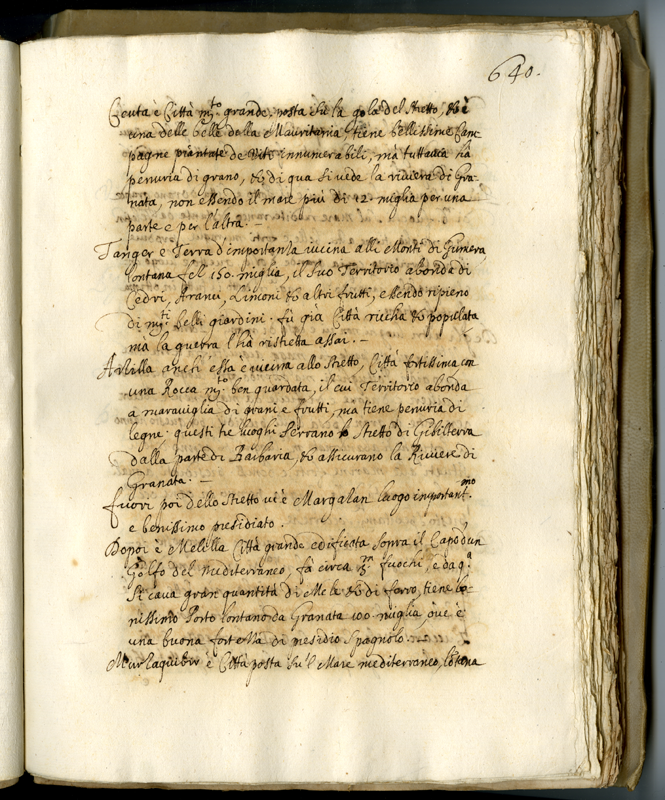 640.
Ceuta è Città m.to grande, posta sù la gola del Stretto, & è
una delle belle della Mauritania, tiene bellissime Cam-
pagne piantate de Viti innumerabili, mà tuttauia hà
penuria di grano, & di qua si vede la riviera di Gra-
nata, non essendo il mare più di 12. miglia per una
parte e per l'altra. —
Tanger è Terra d'importanza vicina alli Monti di Gumera
lontana fel 150. miglia, il suo Territorio abonda di
Cedri, Aranci, Limoni & altri frutti, essendo ripieno
di m.ti belli giardini. fù già Città riccha & populata
ma la guerra l'hà ristretta assai. —
Arzilla anch'essa è vicina allo Stretto, Città fortissima con
una Rocca m.to ben guardata, il cui Territorio abonda
a maraviglia di grani e frutti, ma tiene penuria di
legne. questi tre luoghi serrano lo Stretto di Gibilterra
dalla parte di Barbaria, & assicurano la Riviere di
Granata. —
fuori poi dello Stretto vi è Margalan luogo important.mo
e benissimo presidiato.
Dopoi è Melilla Città grande edificata sopra il Capo d'un
Golfo del mediterraneo, fà circa 3.m fuochi, e da q.a
si cava gran quantità di Mele & di ferro, tiene bo-
nissimo Porto lontano da Granata 100. miglia, ove è
una buona fortezza di presidio Spagnolo.
Marzaquibir è Città posta su'l Mare mediterraneo, lontana